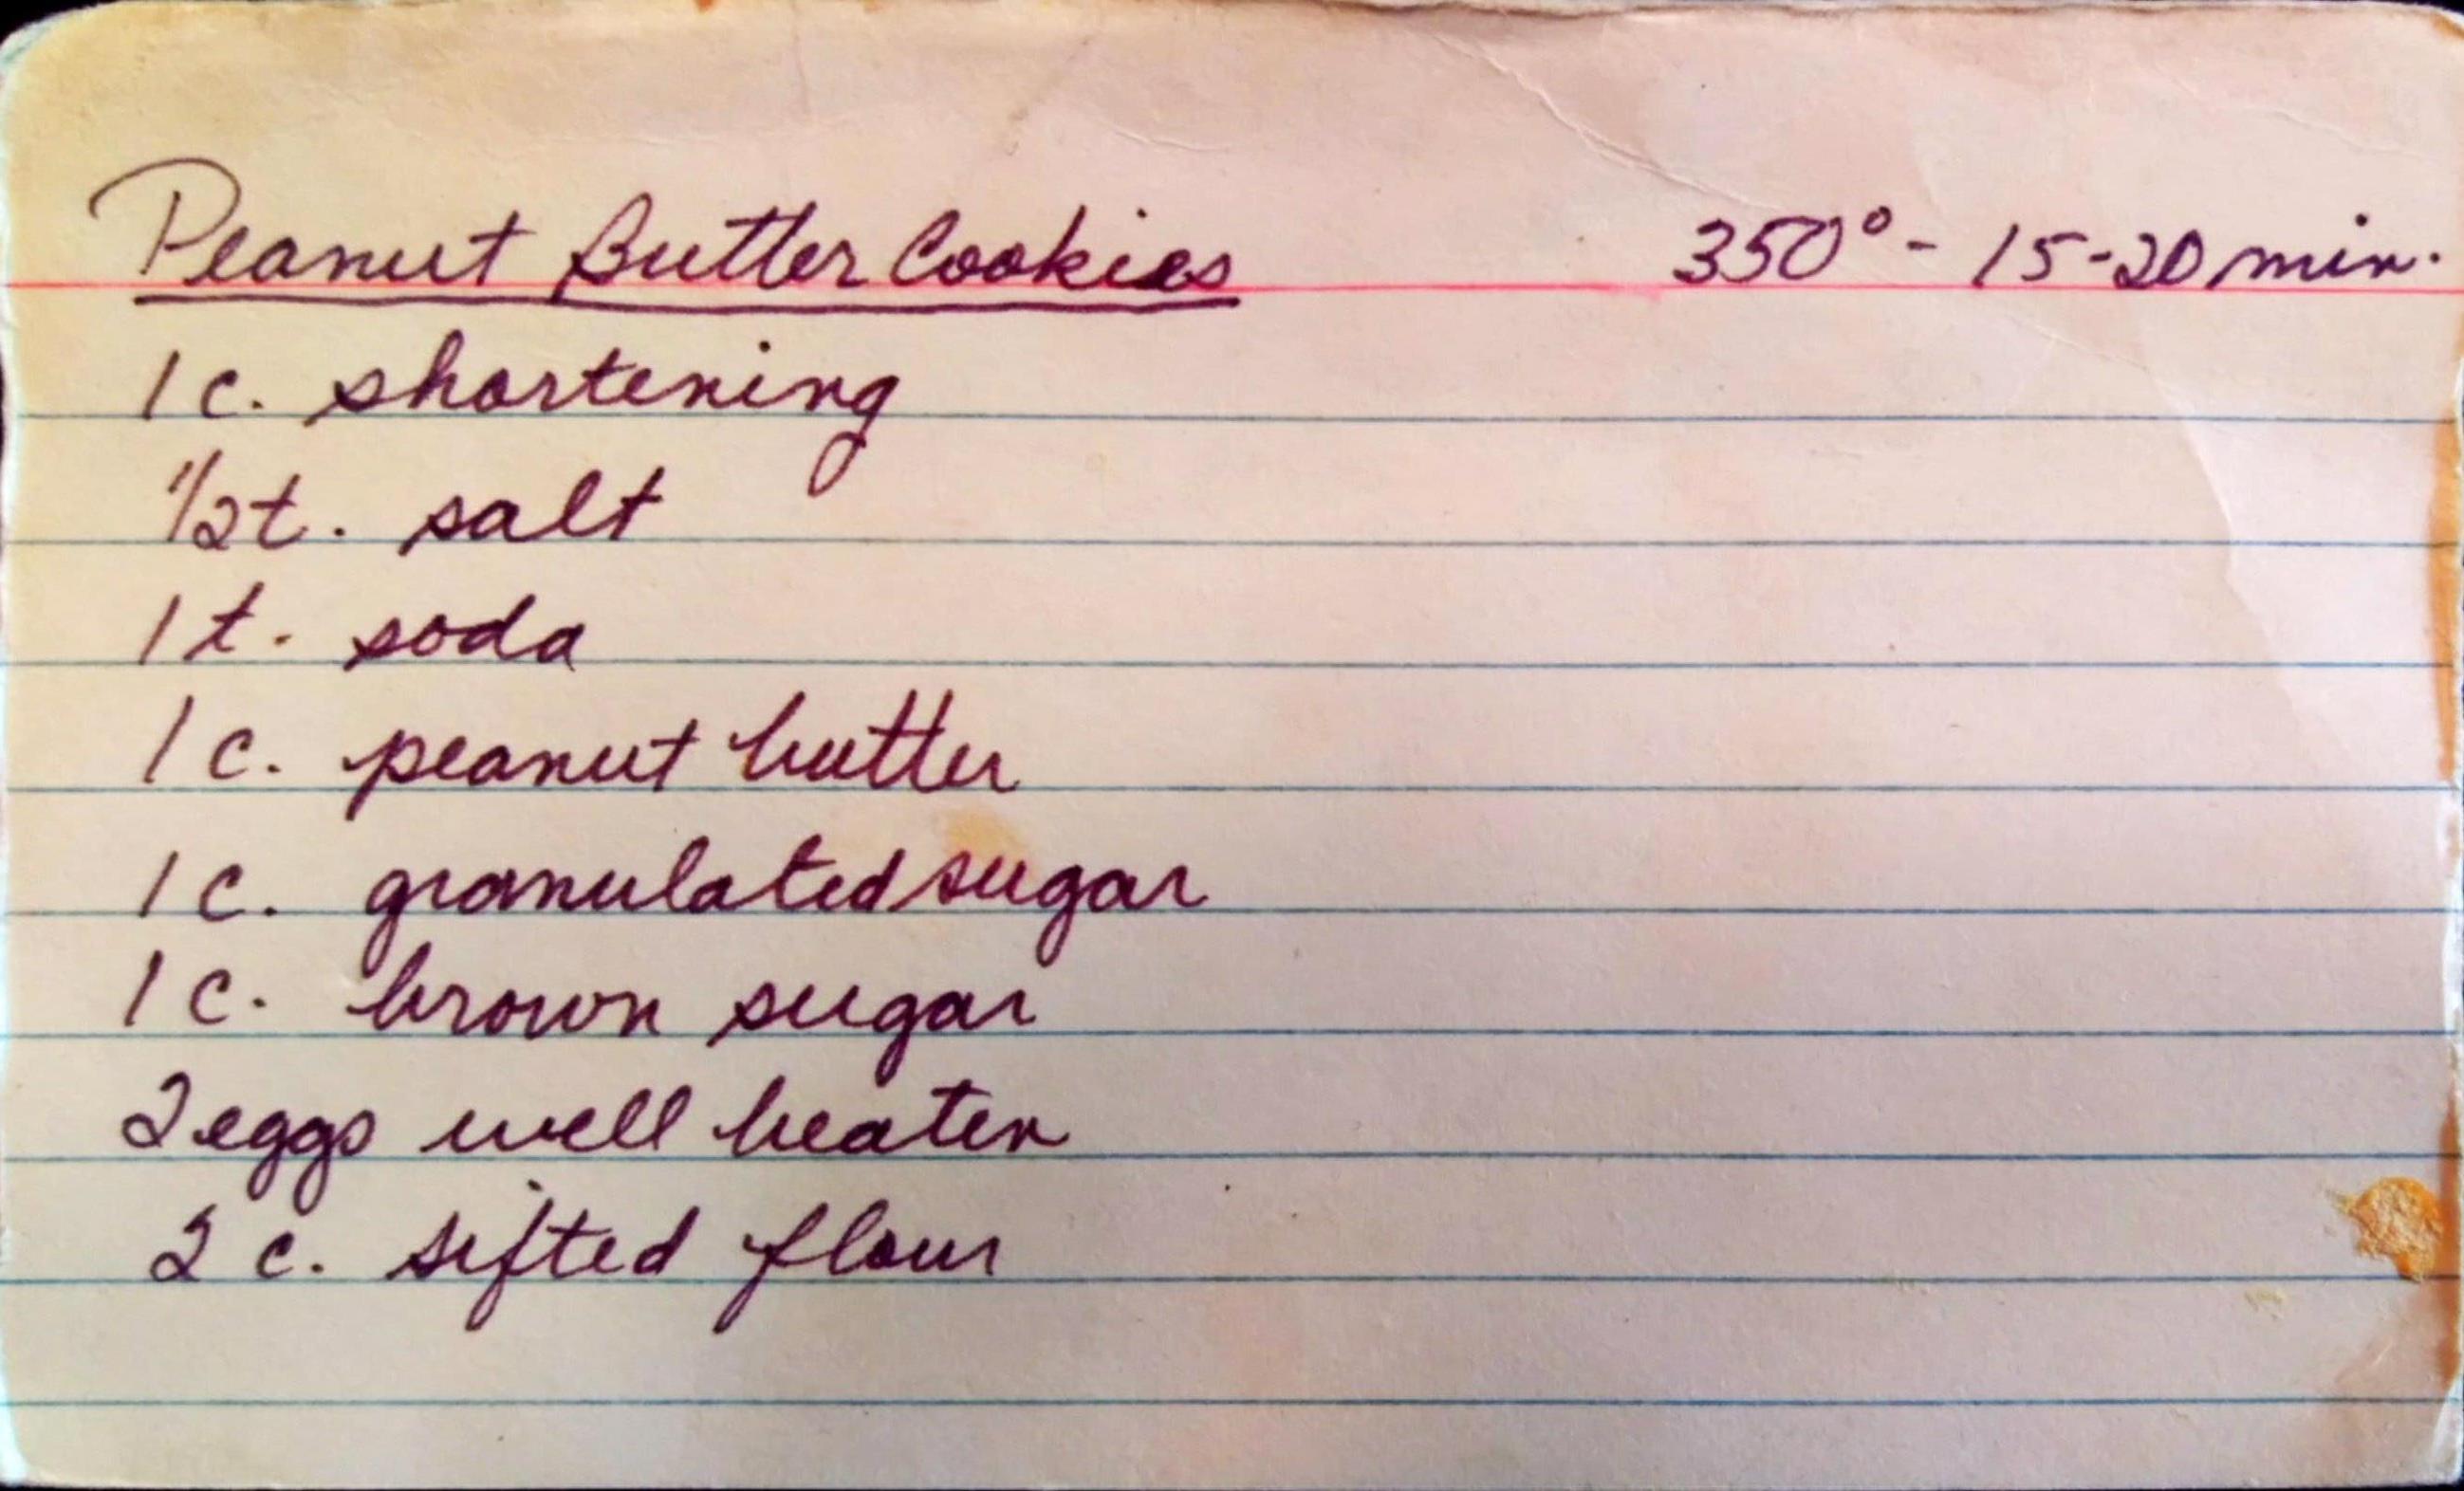 Peanut Butter Cookies 350° - 15-20 min.
1 c. shortening
1/2 t. salt
1 t. soda
1 c. peanut butter
1 c. granulated sugar
1 c. brown sugar
2 eggs well beaten
2 c. sifted flour